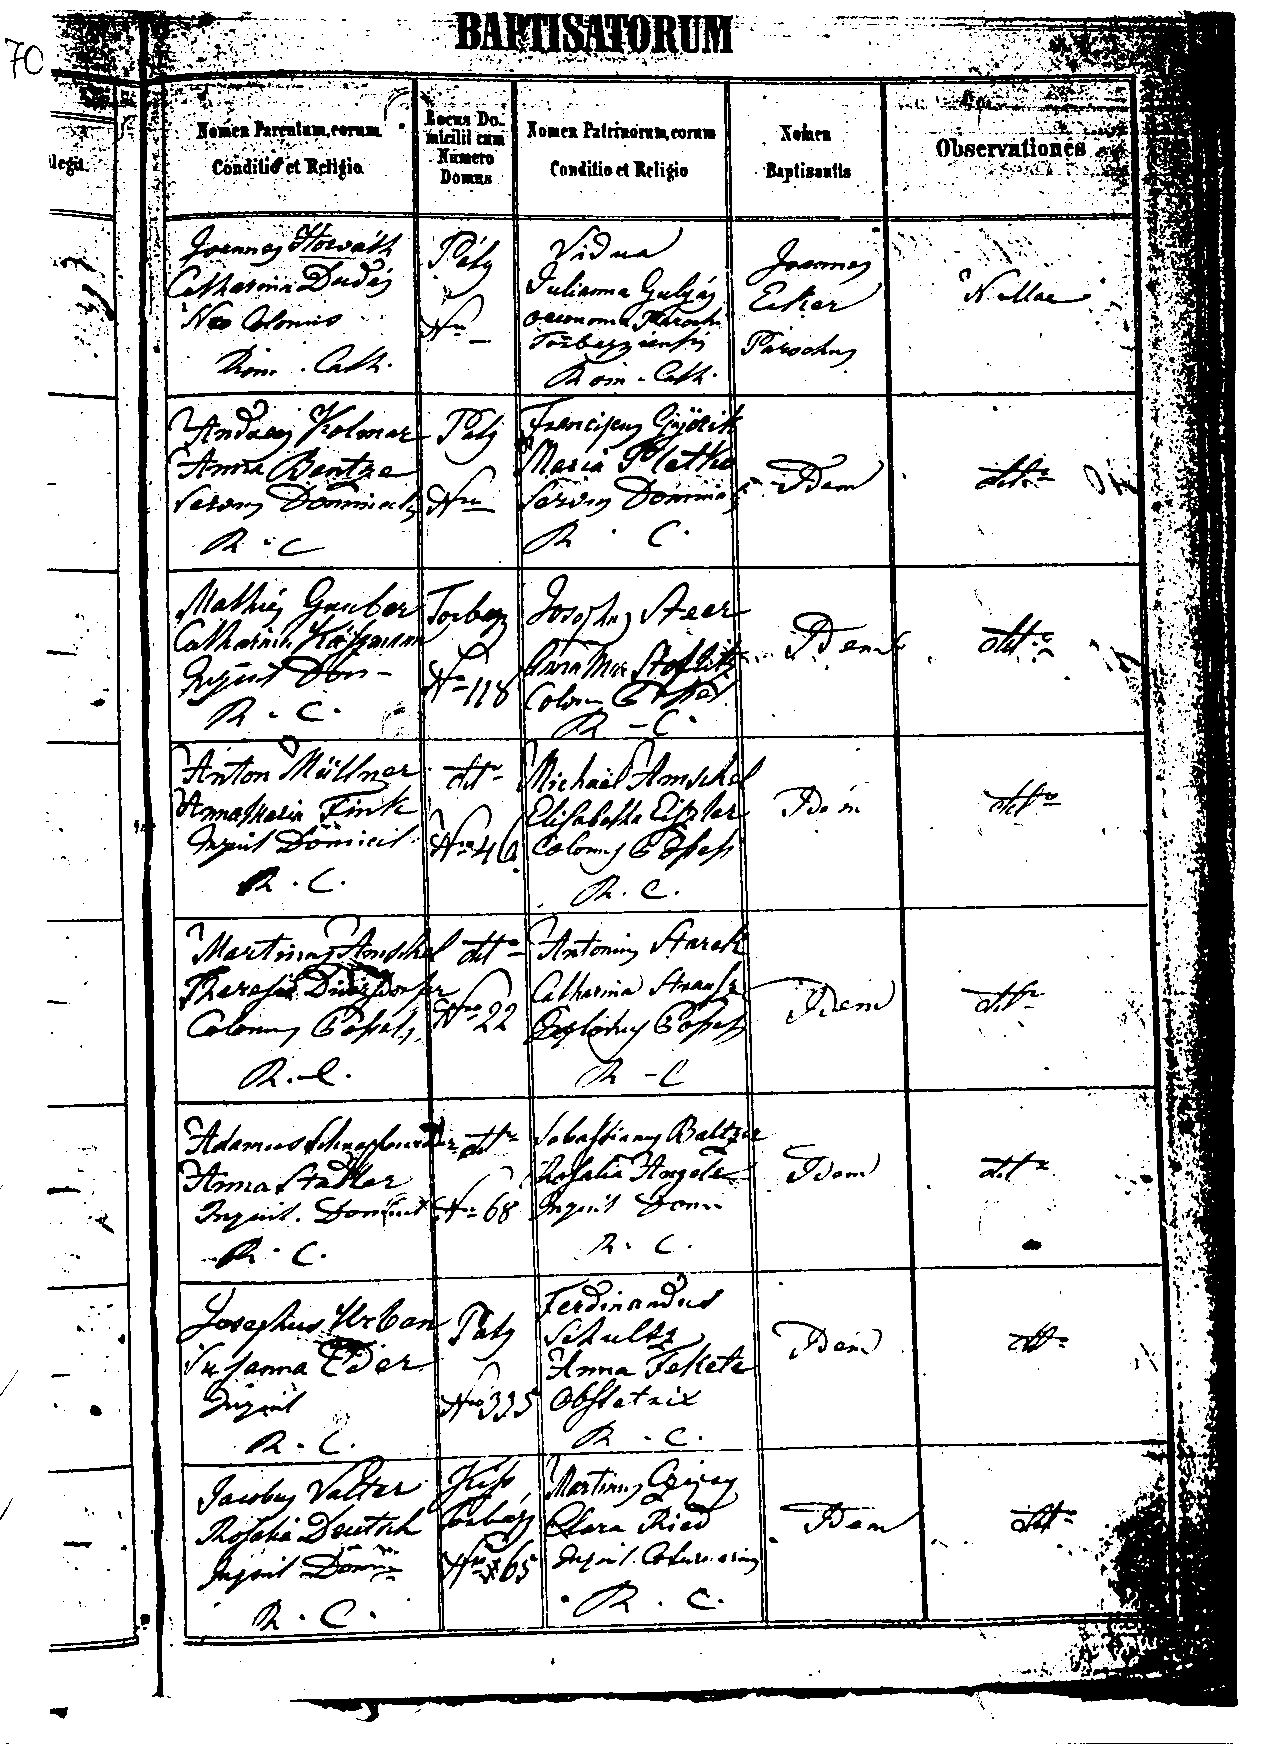 70
BAPTISATORUM
Nomen Parentum, eorum
Conditio et Religio
Locus Do-
micilii cum
Numero
Domus
Nomen Patrinorum, eorum
Conditio et Religio
Nomen
Baptisantis
Observationes
Joannes Horváth
Catharina Dudás
Neo Colonus
Rom. Cath.
Páty
Nro –
Vidua
Julianna Gulyás
oeconoma Paroch
Torbagyensis
Rom. Cath.
Joannes
Ecker
Parochus
Nullae
Andreas Kolmar
Anna Bentze
Servus Dominalis
R. C
Páty
Nro –
Franciscus Györik
Maria Pletka
Servus Dominal
R. C.
Idem
dtto
Mathias Gruber
Catharina
Inquil Dom –
R. C.
Torbágy
Nro 118
Josephus Steer
Anna Mar
Colonus
R – C.
Idem
dtto
Anton Müllner
Anna Maria Fink
Inquil Dominal
R. C.
dtto
Nro 46
Michael Amschel
Elisabetha Eiszler
Colonus
R. C.
Idem
dtto
Martinus Amschel
Theresia
Colonus
R. C.
dtto
Nro 22
Antonius Stark
Catharina Strausz
R – C
Idem
dtto
Adamus
Anna Stadler
Inquil. Dominal
R. C.
dtto
Nro 68
Sebastianus Baltzer
Rosalia Angele
Inquil Dom
R. C.
Idem
dtto
Josephus Urban
Susanna Eder
Inquil
R. C.
Páty
Nro 335
Ferdinandus
Schultz
Anna Fekete
Obstetrix
R. C.
Idem
dtto
Jacobus Valter
Rosalia Deutsch
Inquil Domin
R. C.
Kiss
Torbágy
Nro 65
Martinus
Clara Ried
Inquil
R. C.
Idem
dtto